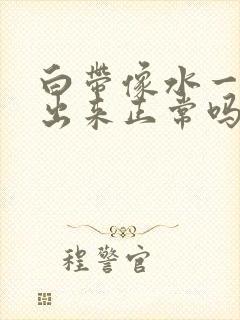 白带像水一
出来正常吗
程警官